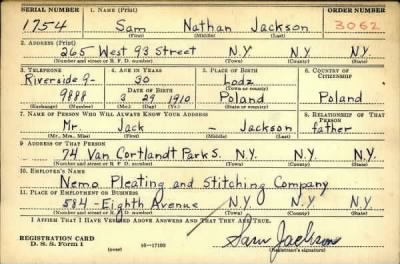 SERIAL NUMBER 1. NAME (Print) ORDER NUMBER
1754 Sam Nathan Jackson 3062
(First) (Middle) (Last)
2. ADDRESS (Print)
265 West 93 Street N.Y. N.Y. N.Y.
(Number and street or R. F. D. number) (Town) (County) (State)
3. TELEPHONE 4. AGE IN YEARS 5. PLACE OF BIRTH 6. COUNTRY OF CITIZENSHIP
Riverside 9- 30 Lodz
DATE OF BIRTH (Town or county)
9888 3 29 1910 Poland Poland
(Exchange) (Number) (Mo.) (Day) (Yr.) (State or country)
7. NAME OF PERSON WHO WILL ALWAYS KNOW YOUR ADDRESS 8. RELATIONSHIP OF THAT PERSON
Mr. Jack - Jackson father
(Mr., Mrs., Miss) (First) (Middle) (Last)
9. ADDRESS OF THAT PERSON
74 Van Cortlandt Park S. N.Y. N.Y. N.Y.
(Number and street or R. F. D. number) (Town) (County) (State)
10. EMPLOYER'S NAME
Nemo Pleating and Stitching Company
11. PLACE OF EMPLOYMENT OR BUSINESS
584 - Eighth Avenue N.Y. N.Y. N.Y.
(Number and street or R. F. D. number) (Town) (County) (State)
I AFFIRM THAT I HAVE VERIFIED ABOVE ANSWERS AND THAT THEY ARE TRUE.
REGISTRATION CARD Sam Jackson
D. S. S. Form 1 (over) 16-17105 (Registrant's signature)